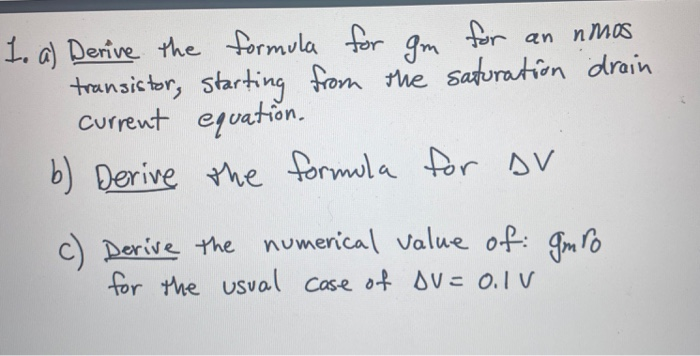 1. a) Derive the formula for gm for an nMOS
transistor, starting from the saturation drain
current equation.
b) Derive the formula for ΔV
c) Derive the numerical value of: gmro
for the usual case of ΔV = 0.1 V